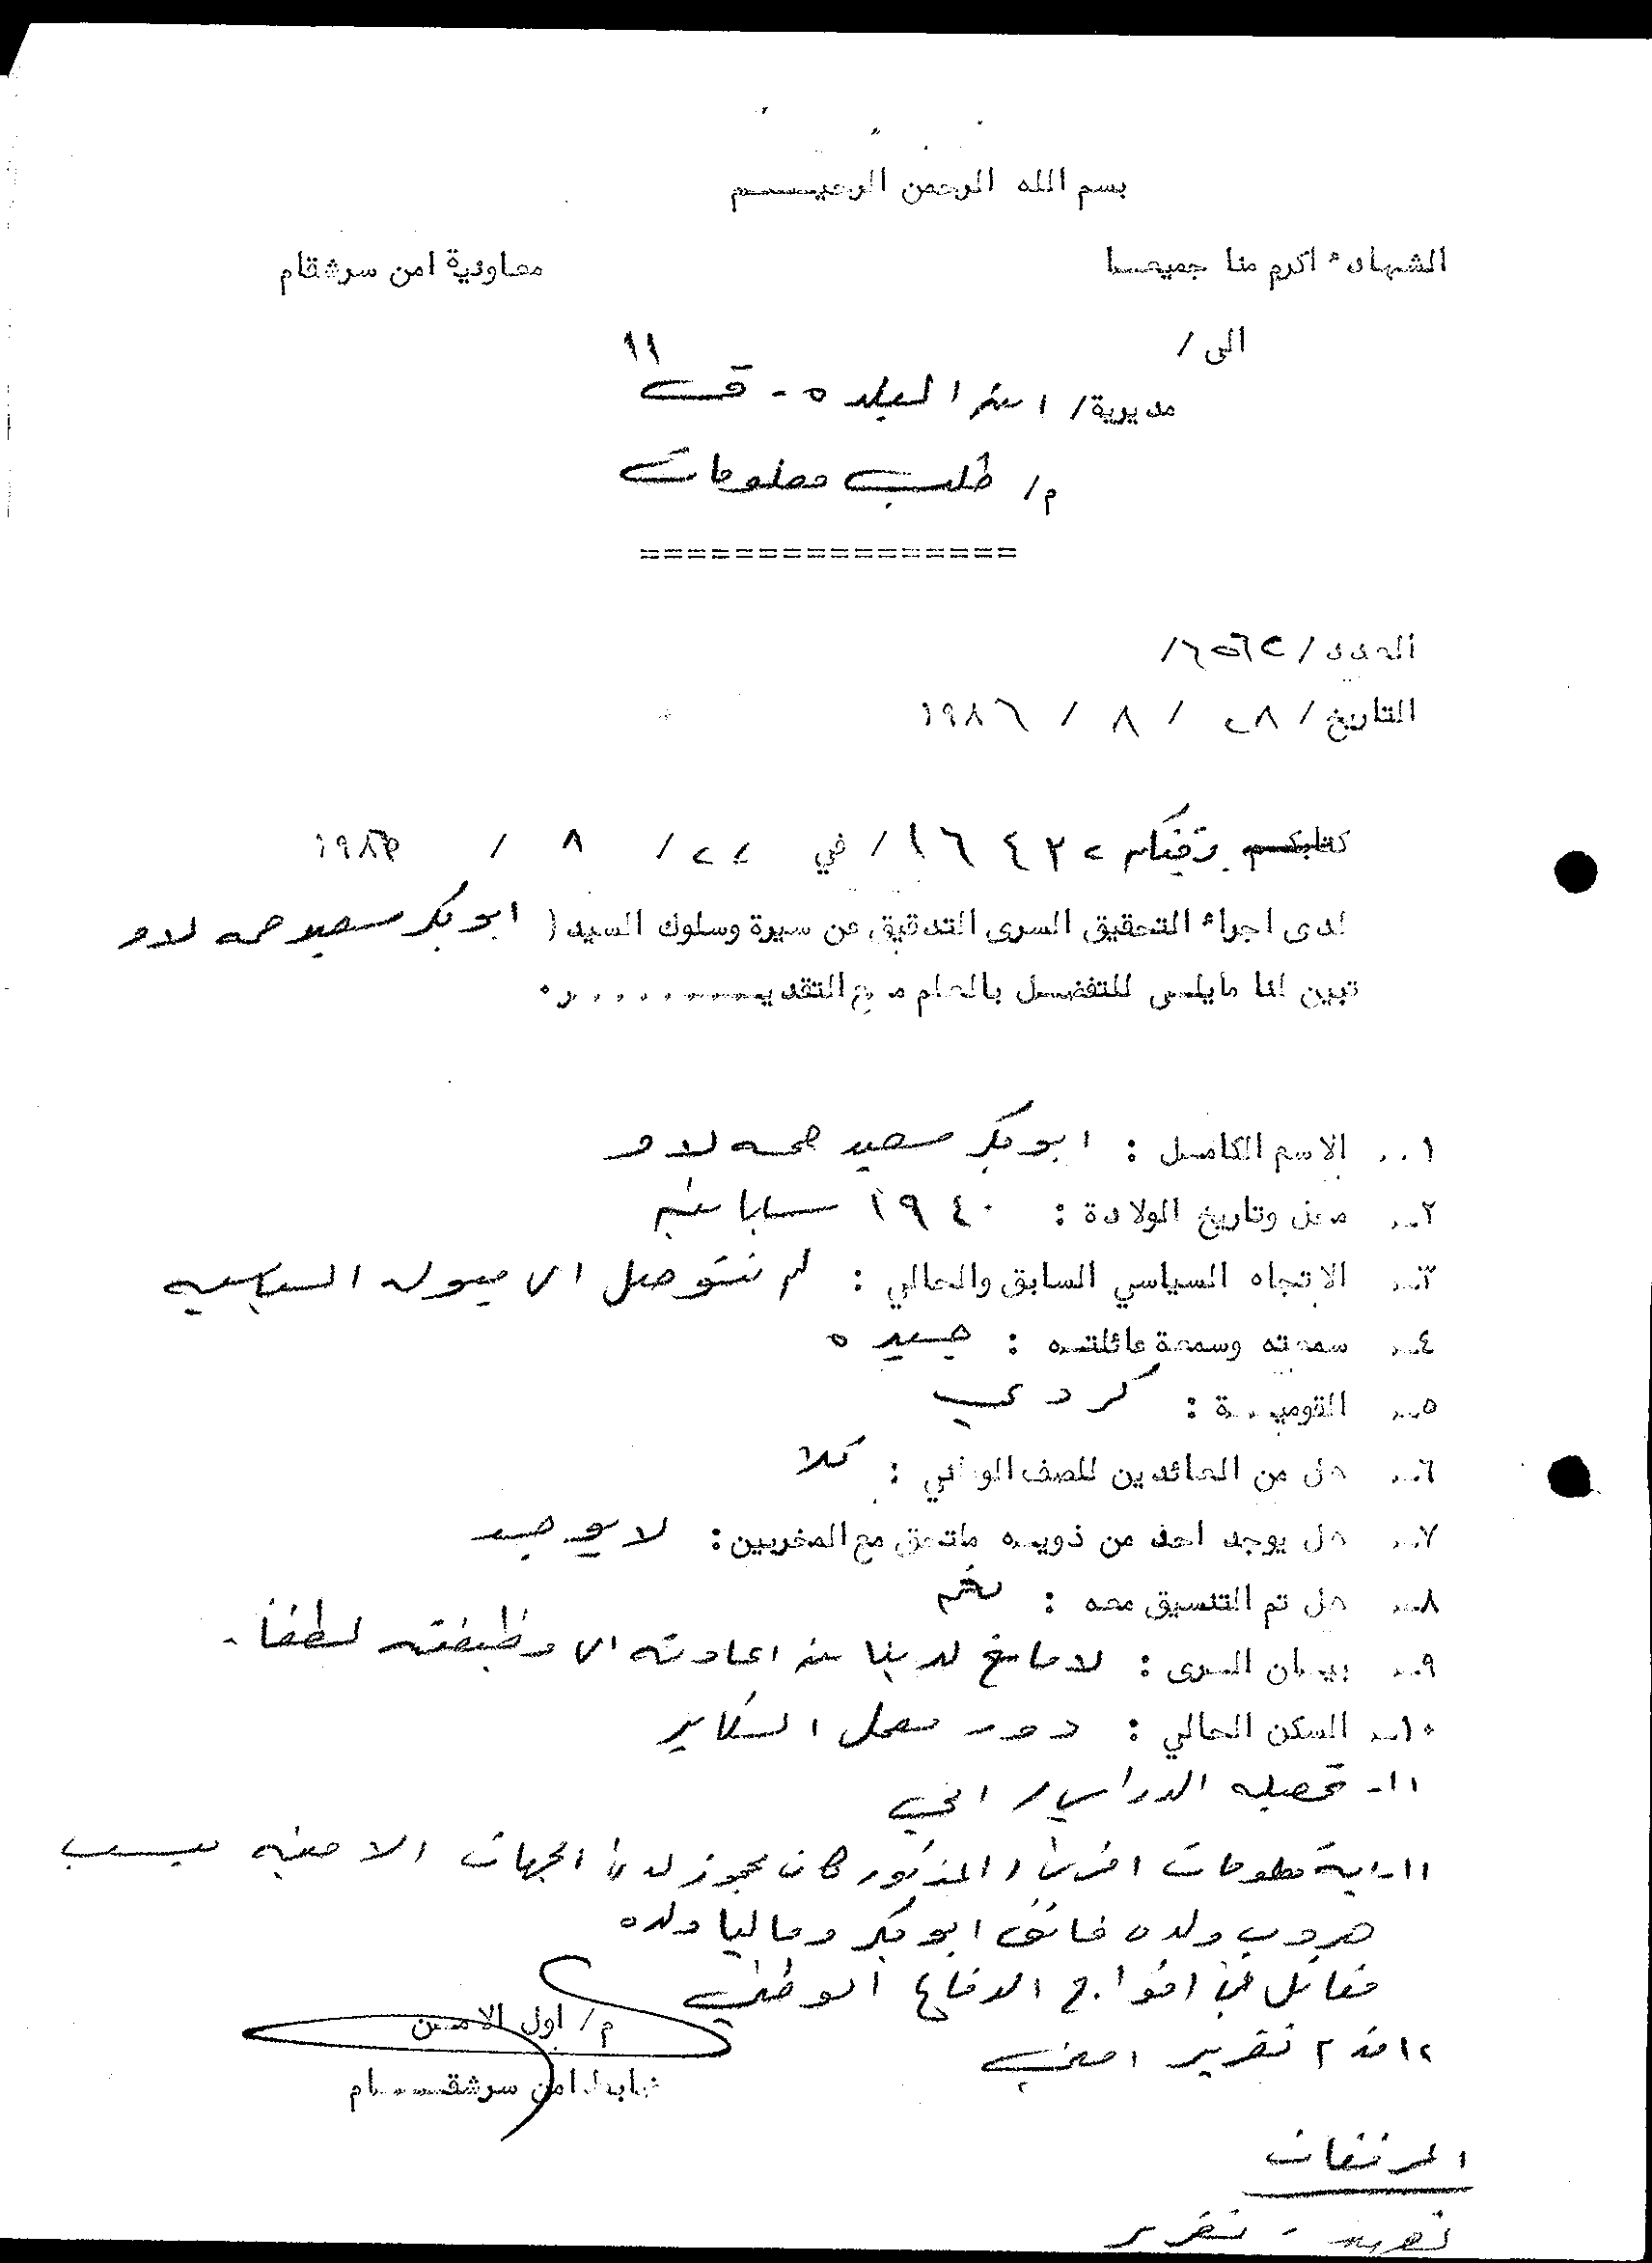 بسم الله الرحمن الرحيـــــم
الشهداء اكرم منا جميعـــا
معاونية امن سرشقام
الى /
مديرية / امن البلده - ق ١١
م / طلب معلومات
================
العدد /
التاريخ / ٢٨ / ٨ / ١٩٨٦
كتابكـــم برقيتكم ١٦٤٣٢ / في ٢٧ / ٨ / ١٩٨٦
لدى اجراء التحقيق السرى التدقيق عن سيرة وسلوك السيد ( ابو بكر سعيد حمه لاو
تبين لنا مايلـــي للتفضـــل بالعلم مع التقديـــــ . . . . . . . ر .
١ .. الاسم الكامـــل : ابو بكر سعيد حمه لاو
٢ .. محل وتاريخ الولادة : ١٩٤٠
٣ .. الاتجاه السياسي السابق والحالي : لم نتوصل الى ميوله السياسيه
٤ .. سمعته وسمعة عائلتـــه : جيده
٥ .. القوميـــة : كردي
٦ .. هل من العائدين للصف الوطني : كلا
٧ .. هل يوجد احد من ذويـــه ملتحق مع المخربين : لا يوجد
٨ .. هل تم التنسيق معه : نعم
٩ .. بيـــان الـــرى : لا مانع لدينا من اعادته الى وظيفته لطفاً .
١٠ .. السكن الحالي : دور معمل السكاير
١١ - تحصيله الدراسي / امي
١١ - اية معلومات اخرى / المذكور كان محجوز لدى الجهات الامنيه بسبب
هروب ولده فائق ابو بكر وحاليا ولده
مقاتل في افواج الدفاع الوطني
١٢ تقرير امني
م / اول الامـــن
ضابط امن سرشقـــــام
المرفقات
تعهد - تقرير